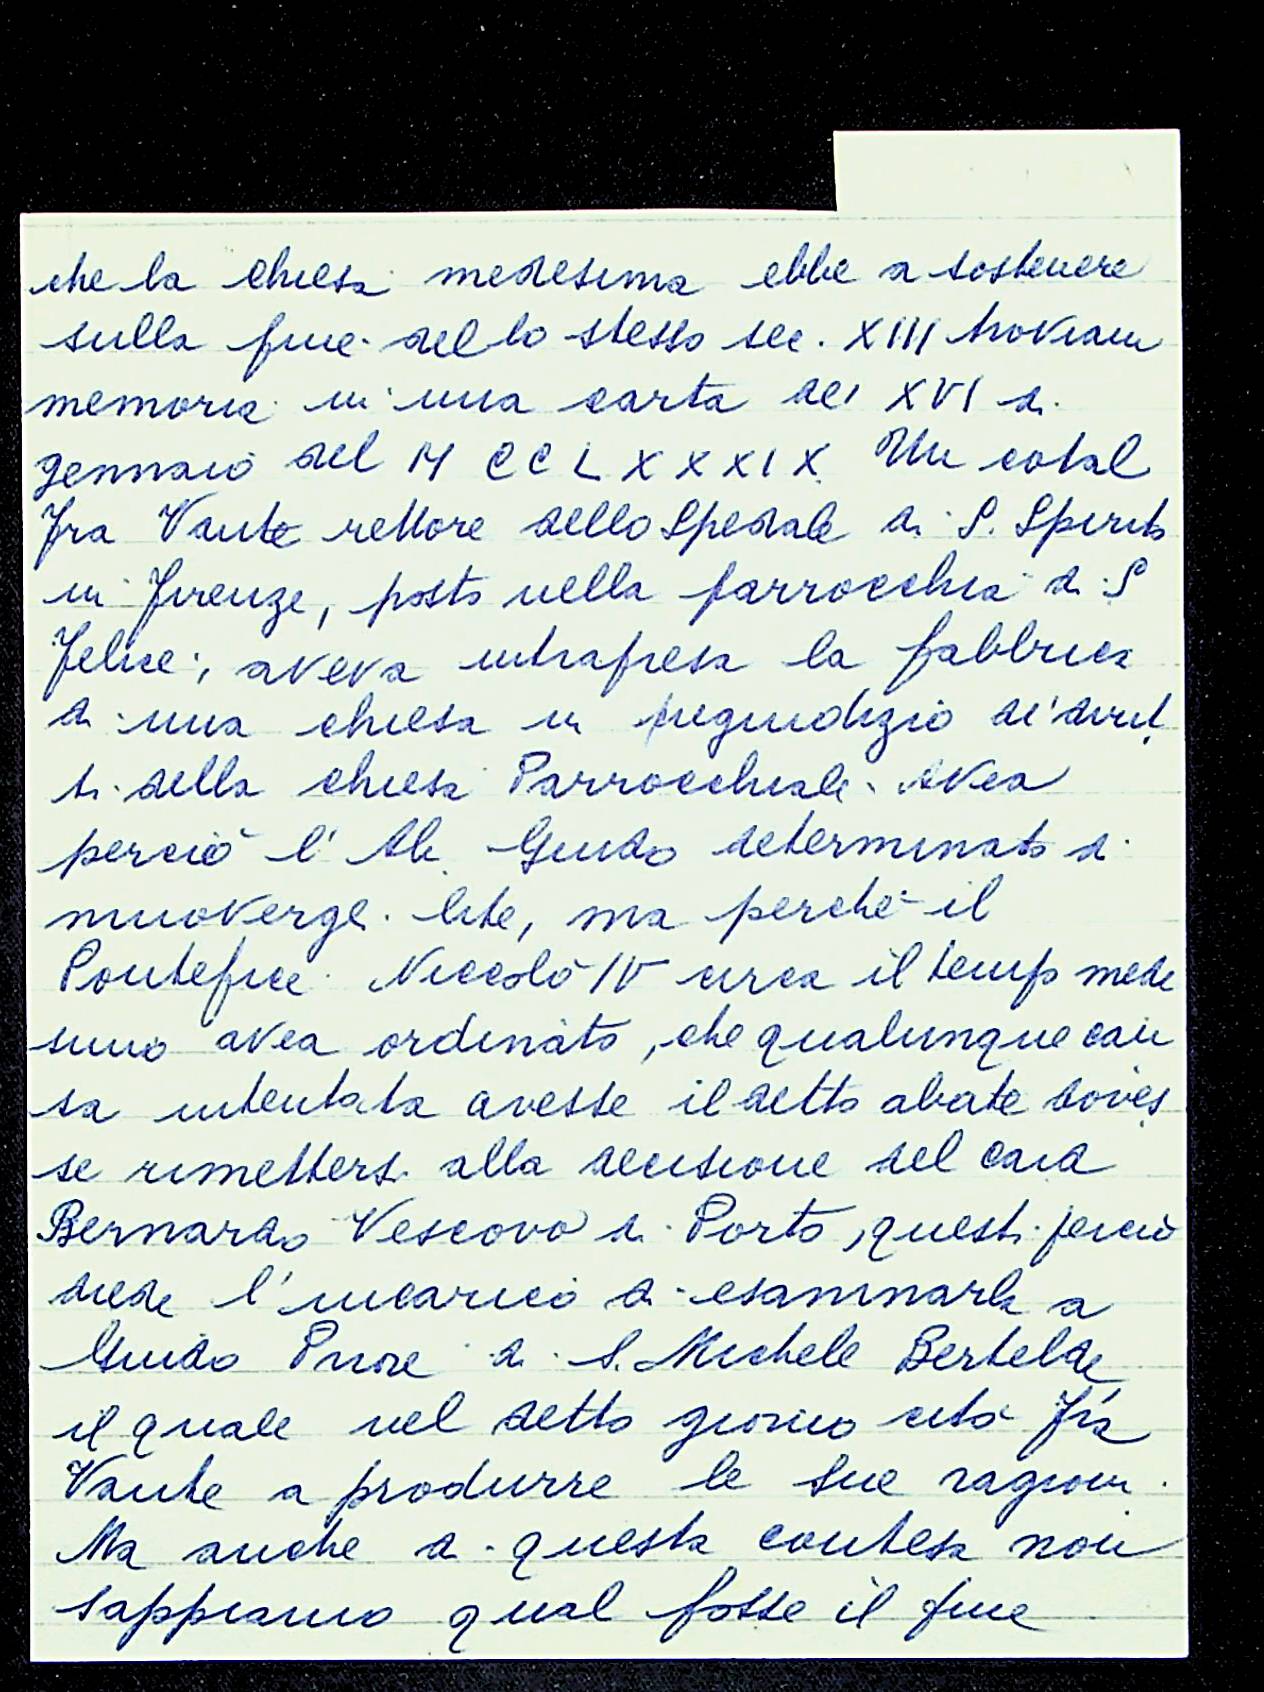 che la chiesa medesima ebbe a sostenere
sulla fine dello stesso sec. XIII troviam
memoria in una carta dei XVI di
gennaio del MCCLXXXIX Un cotal
fra Vante rettore dello Spedale di S. Spirito
in Firenze, posto nella parrocchia di S
Felice, aveva intrapresa la fabbrica
di una chiesa in pregiudizio de' dirit
ti della chiesa Parrocchiale. Avea
perciò l'Ab. Guido determinato di
muoverge. lite, ma perchè il
Pontefice Niccolò IV circa il tempo mede
simo avea ordinato, che qualunque cau
sa intentata avesse il detto abate doves
se rimettersi alla decisione del Card
Bernardo Vescovo di Porto, questi perciò
diede l'incarico di esaminarla a
Guido Priore di S. Michele Bertelde
il quale nel detto giorno citò Fra
Vante a produrre le sue ragioni.
Ma anche di questa contesa non
sappiamo qual fosse il fine